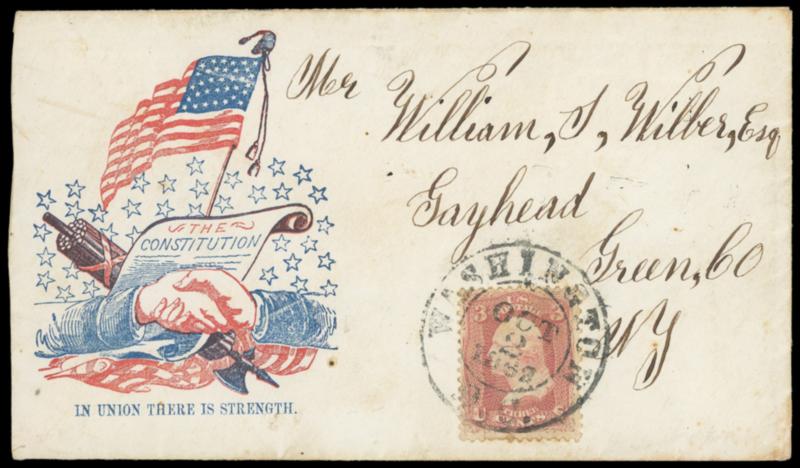 THE
CONSTITUTION
IN UNION THERE IS STRENGTH.
Mr
William, S, Wilber, Esq
Gayhead
Green, CO
NY
WASHINGTON
OCT
2
1862
U.S.
3 3
THREE
CENTS